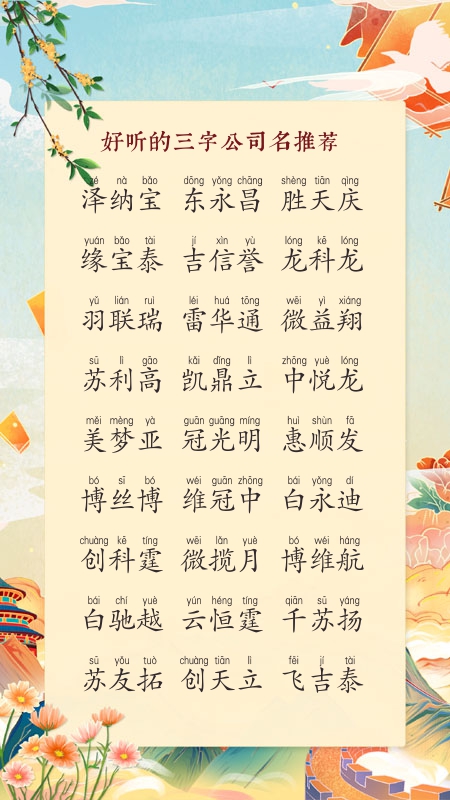 好听的三字公司名推荐
zé nà bǎo dōng yǒng chāng shèng tiān qìng
泽纳宝 东永昌 胜天庆
yuán bǎo tài jí xìn yù lóng kē lóng
缘宝泰 吉信誉 龙科龙
yǔ lián ruì léi huá tōng wēi yì xiáng
羽联瑞 雷华通 微益翔
sū lì gāo kǎi dǐng lì zhōng yuè lóng
苏利高 凯鼎立 中悦龙
měi mèng yà guān guāng míng huì shùn fā
美梦亚 冠光明 惠顺发
bó sī bó wéi guān zhōng bái yǒng dí
博丝博 维冠中 白永迪
chuàng kē tíng wēi lǎn yuè bó wéi háng
创科霆 微揽月 博维航
bái chí yuè yún héng tíng qiān sū yáng
白驰越 云恒霆 千苏扬
sū yǒu tuò chuàng tiān lì fēi jí tài
苏友拓 创天立 飞吉泰